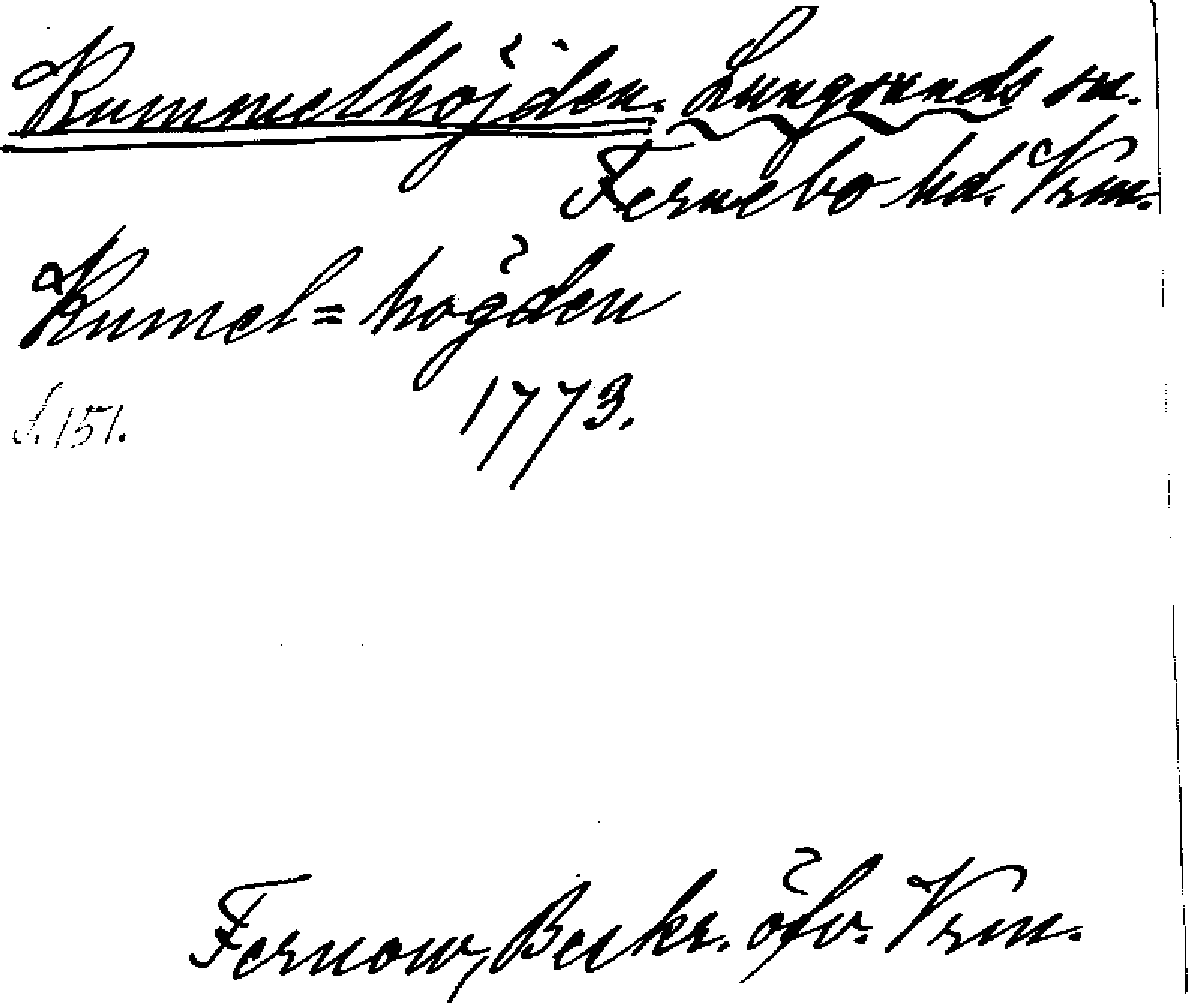 Kummelhöjden. Lungsunds sn.
Fernebo hd. Vrm.
Kumel=högden
s. 151. 1773.
Fernow, Beskr. öfv. Vrm.